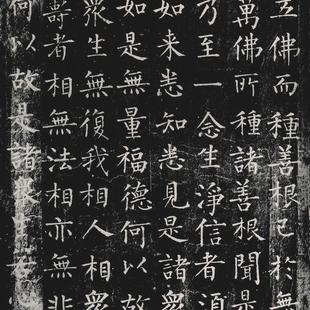 五佛而種善根已於無
萬佛所種諸善根聞是
乃至一念生淨信者須
如来悉知悉見是諸衆
如是無量福德何以故
衆生無復我相人相衆
壽者相無法相亦無非
何以故是諸衆生